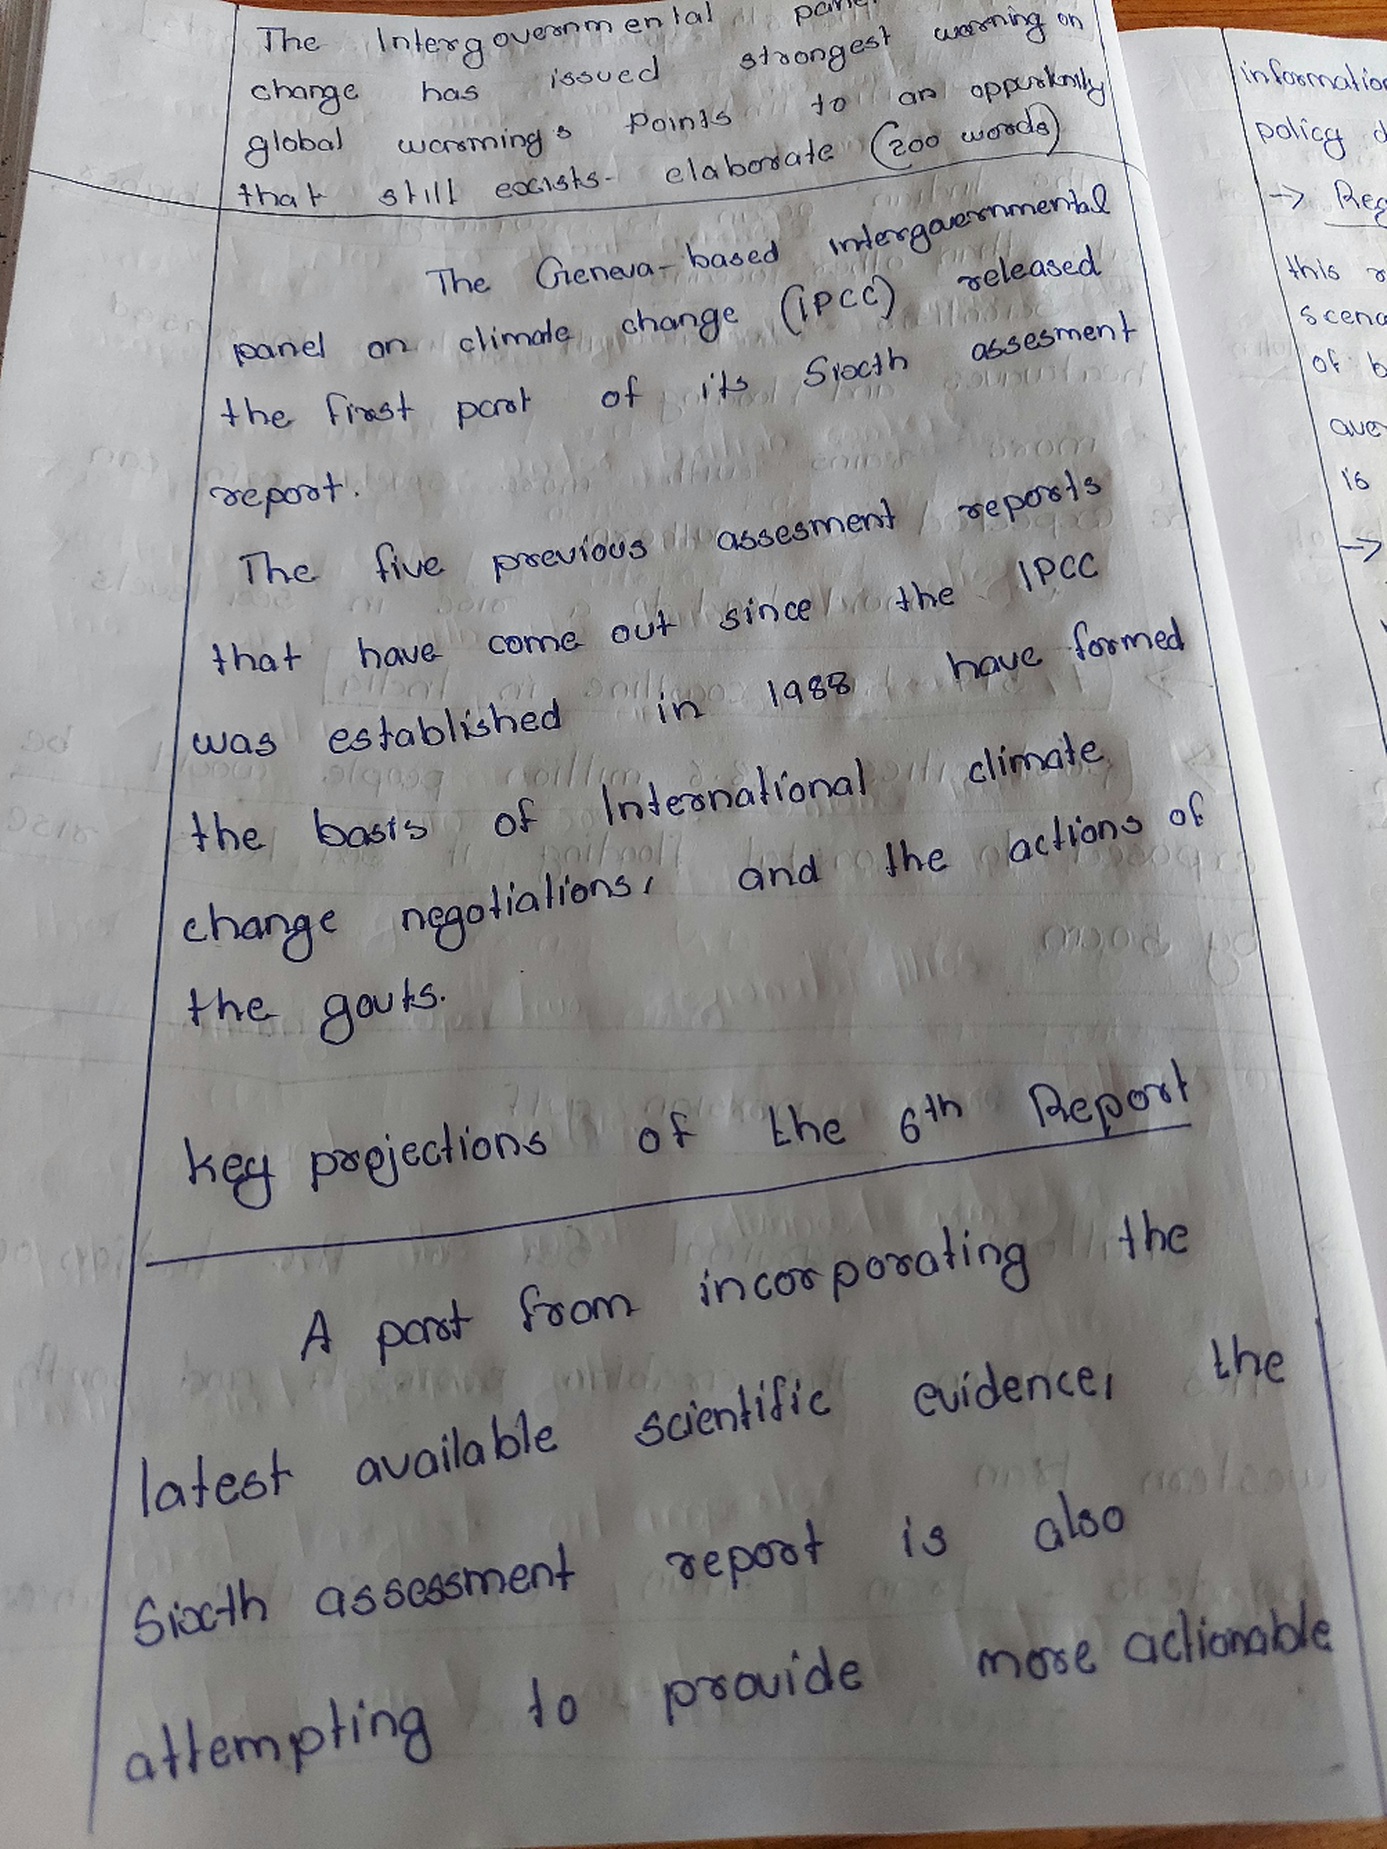 The Intergovernmental panel
change has issued strongest warning on
global warming's points to an oppurtunity
that still exists- elaborate (200 words)
The Geneva-based intergovernmental
panel on climate change (IPCC) released
the first part of its Sixth assesment
report.
The five previous assesment reports
that have come out since the IPCC
was established in 1988 have formed
the basis of International climate
change negotiations, and the actions of
the govts.
key projections of the 6th Report
A part from incorporating the
latest available scientific evidence, the
Sixth assessment report is also
attempting to provide more actionable
information
policy
→
this
of
is
→